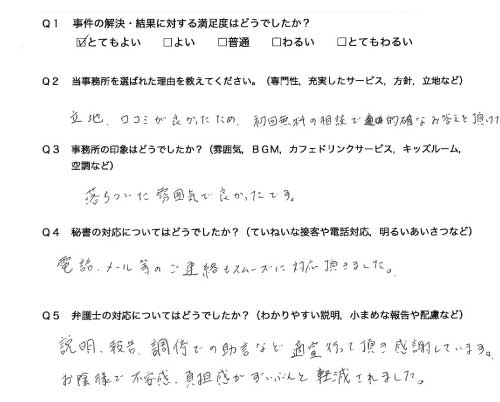 Q1 事件の解決・結果に対する満足度はどうでしたか？
☑とてもよい □よい □普通 □わるい □とてもわるい
Q2 当事務所を選ばれた理由を教えてください。（専門性，充実したサービス，方針，立地など）
立地、口コミが良かったため、初回無料の相談で的確なお答えを頂けた
Q3 事務所の印象はどうでしたか？（雰囲気，ＢＧＭ，カフェドリンクサービス，キッズルーム，
空調など）
落ちついた雰囲気で良かったです。
Q4 秘書の対応についてはどうでしたか？（ていねいな接客や電話対応，明るいあいさつなど）
電話、メール等のご連絡もスムーズに対応頂きました。
Q5 弁護士の対応についてはどうでしたか？（わかりやすい説明，小まめな報告や配慮など）
説明、報告、調停での助言など適宜行って頂き感謝しています。
お陰様で不安感、負担感がずいぶんと軽減されました。